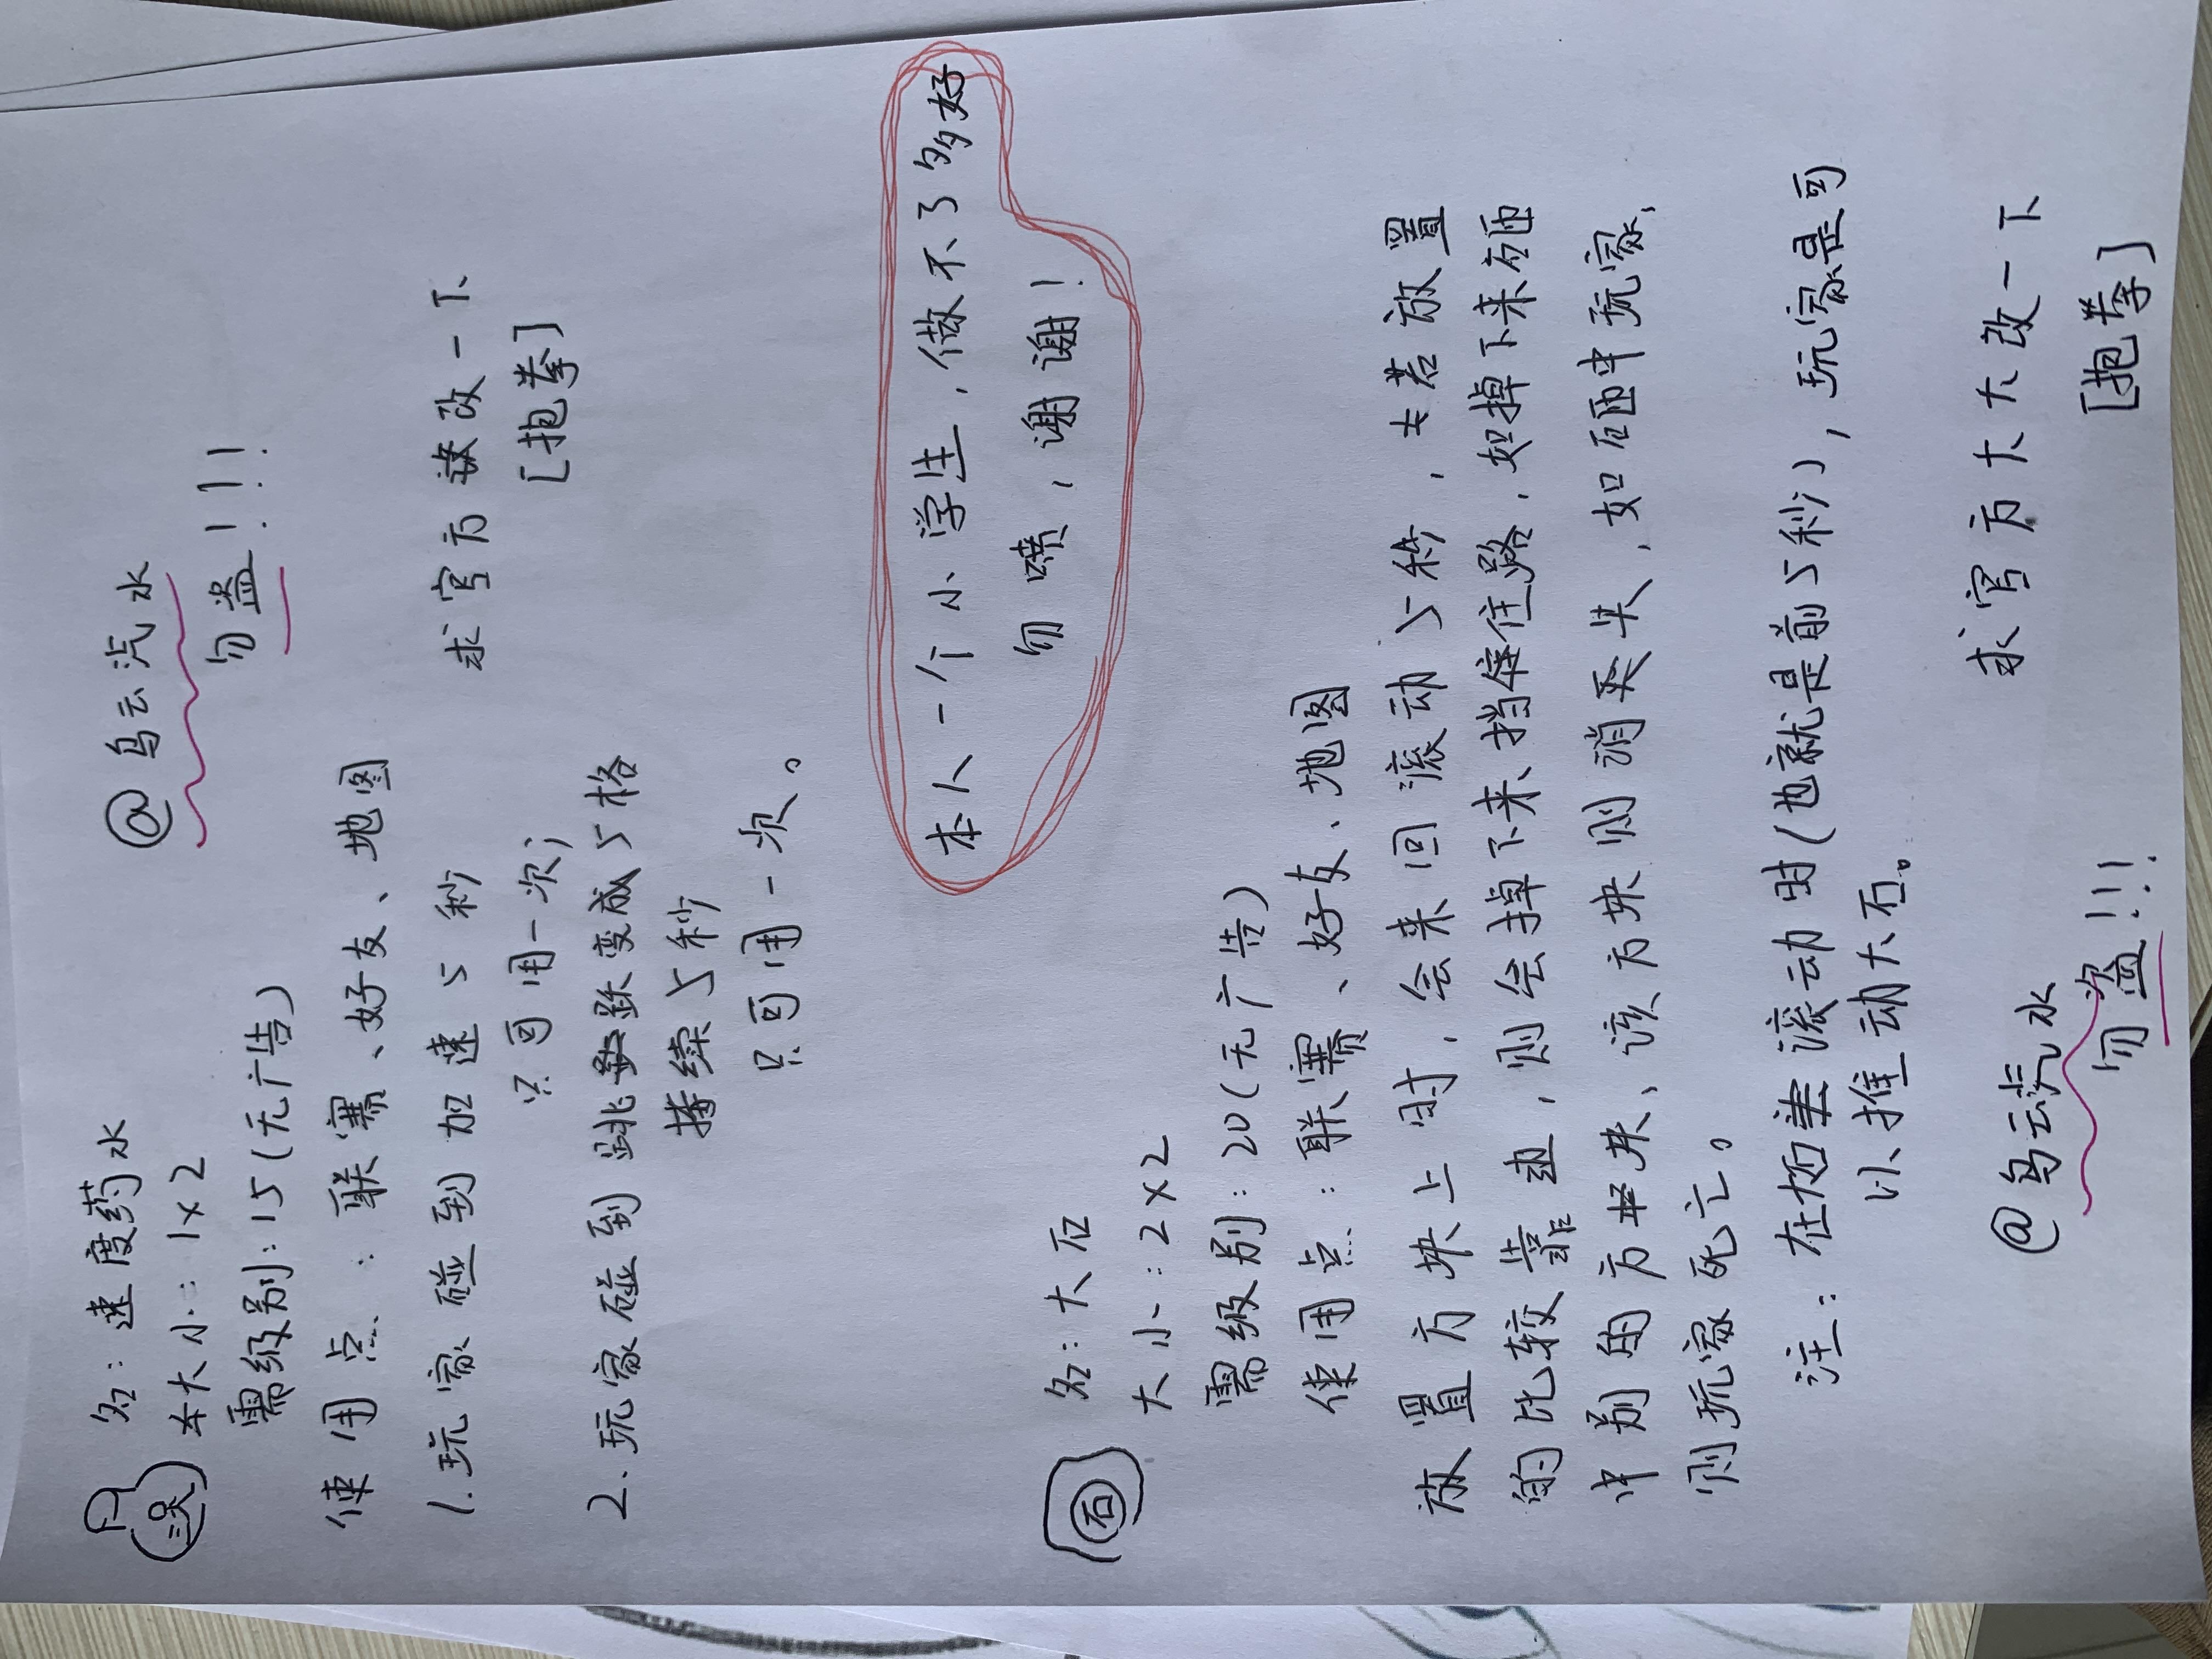 名：速度药水
@乌云汽水
大小：1×2
勿盗！！！
需级别：15（无广告）
使用点：联赛、好友、地图
1.玩家碰到加速5秒
只可用一次；
求官方改一下
[抱拳]
2.玩家碰到跳跃变成5格
持续5秒
只可用一次。
本人一个小学生，做不了多好
勿喷，谢谢！
石
名：大石
大小：2×2
需级别：20（无广告）
使用点：联赛、好友、地图
放置方块上时，会来回滚动5秒，若放置
的比较靠边，则会掉下来挡住路，如掉下来砸
中别的方块、该方块则消失、如砸中玩家，
则玩家死亡。
注：在滚动时（也就是前5秒），玩家是可
以推动大石。
@乌云汽水
勿盗！！！
求官方大大改一下
[抱拳]